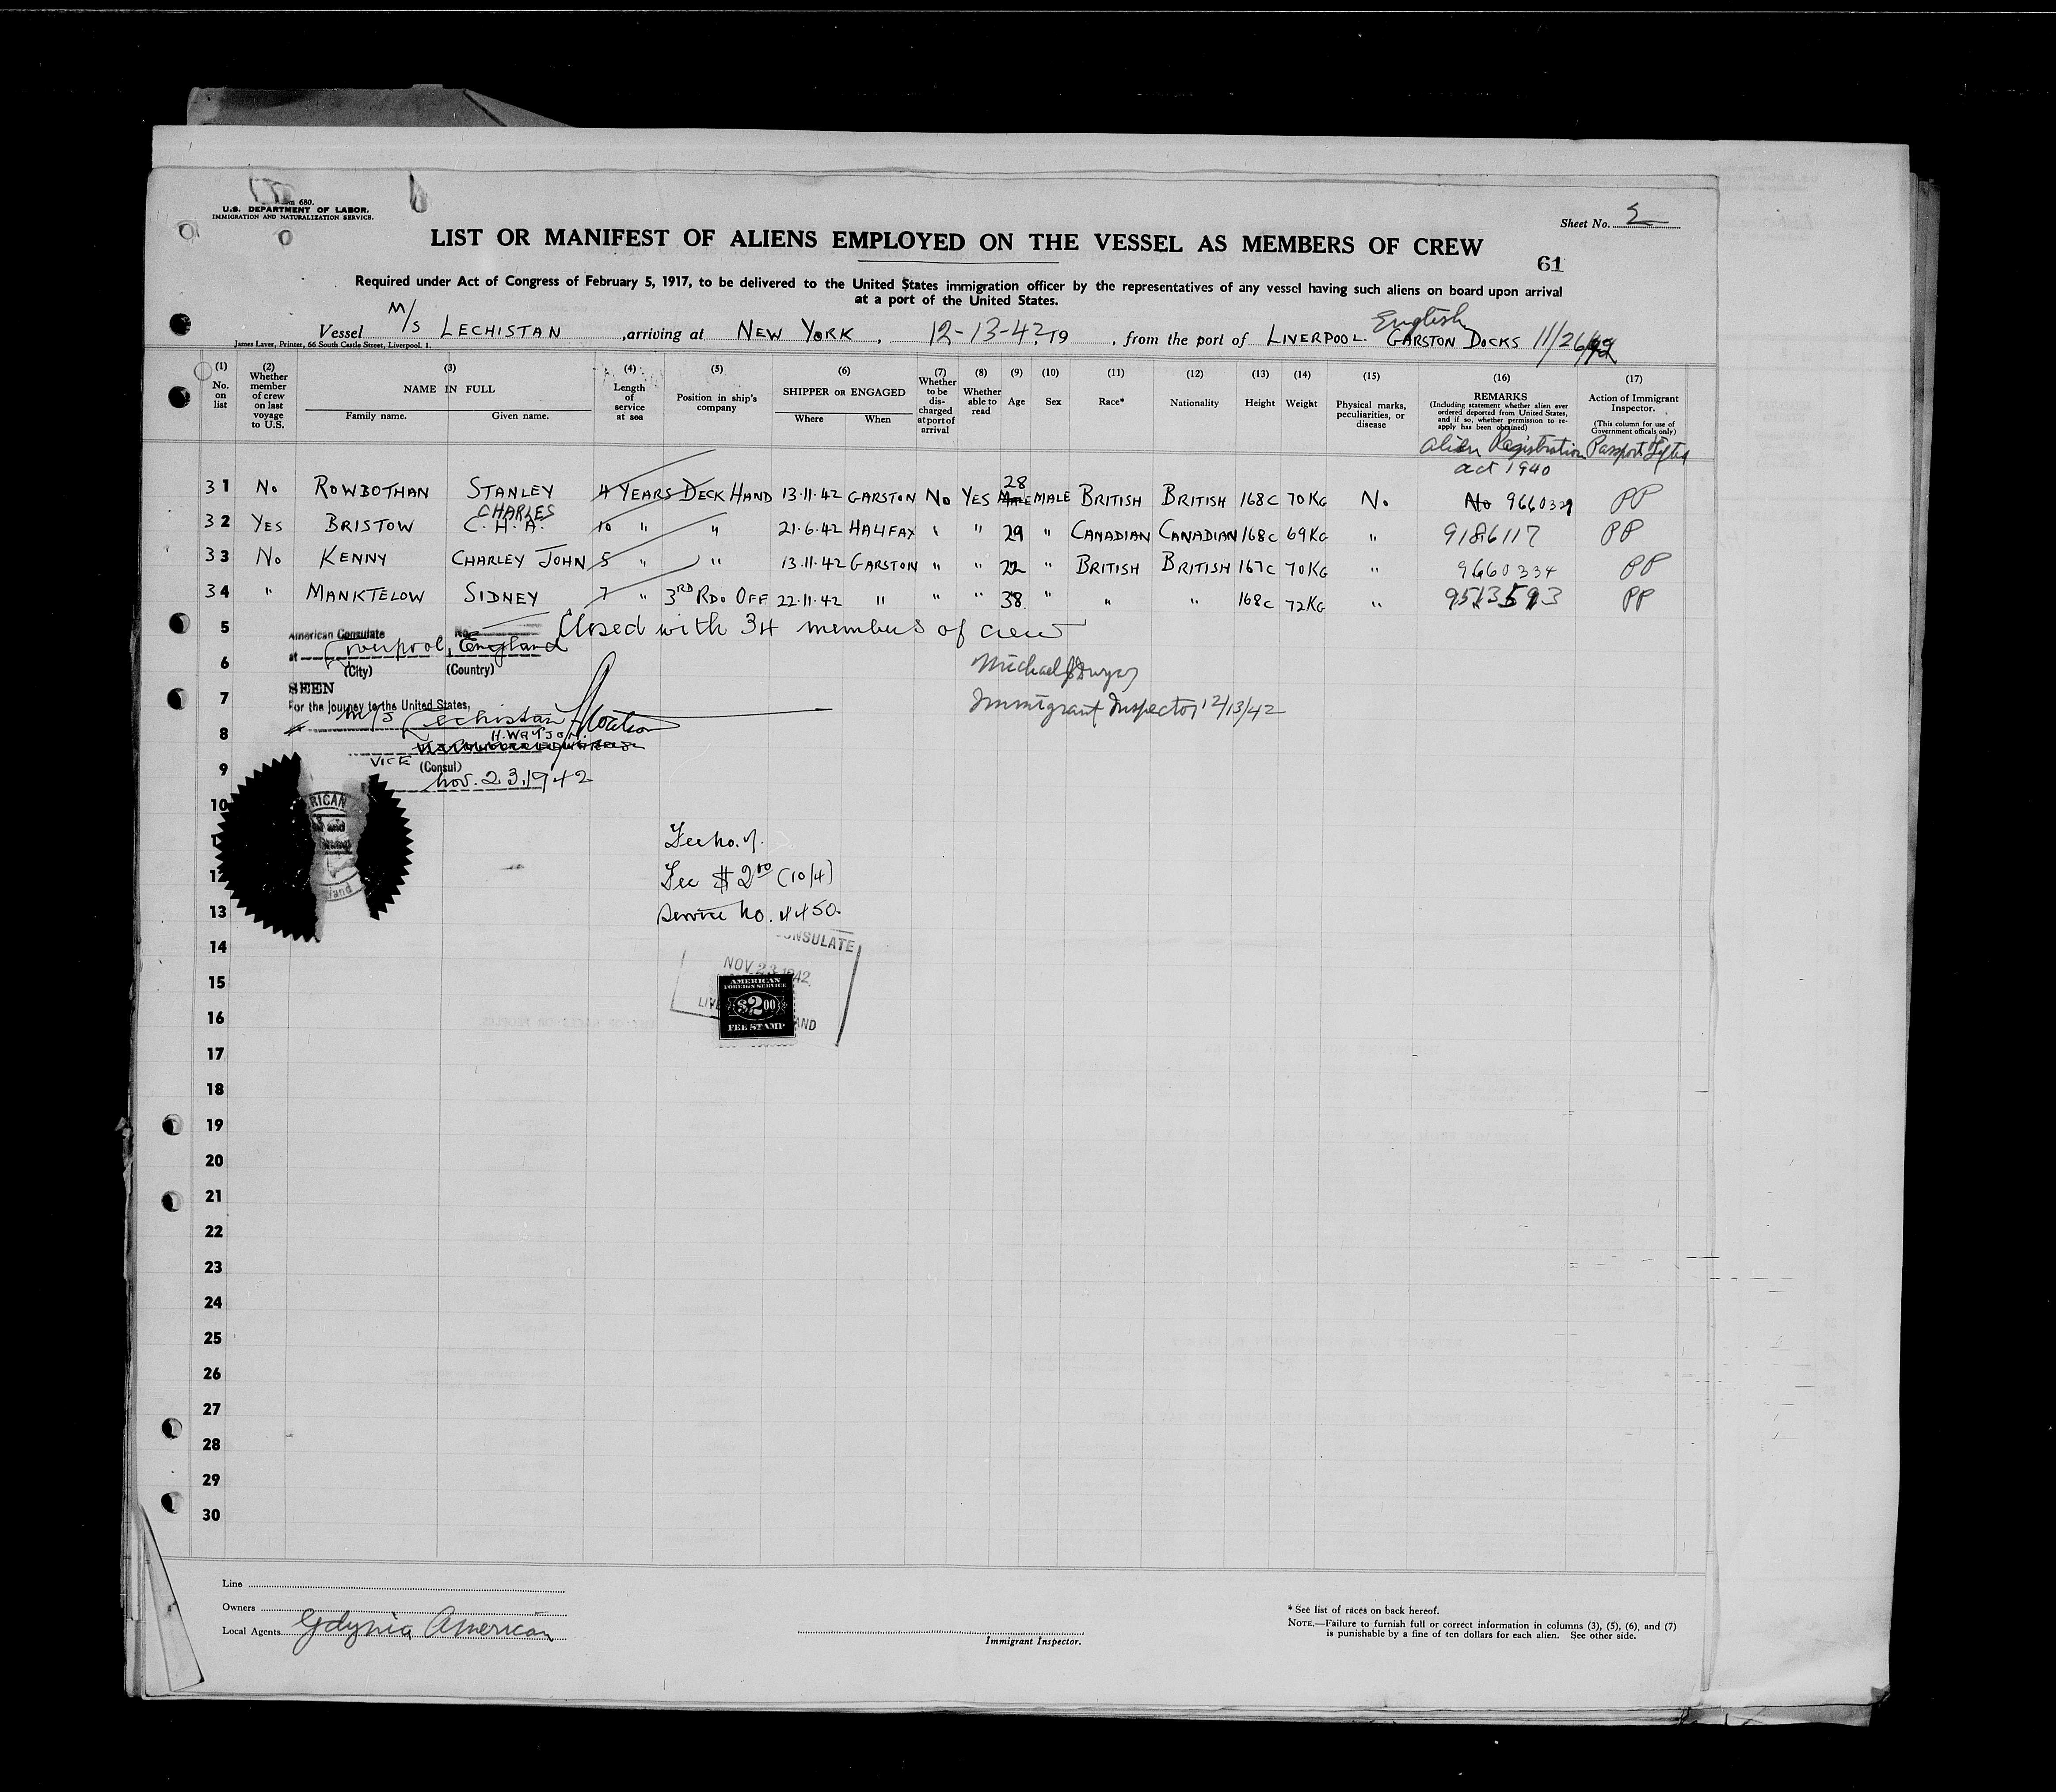 Form 680.
U.S. DEPARTMENT OF LABOR.
IMMIGRATION AND NATURALIZATION SERVICE.
Sheet No. 2
LIST OR MANIFEST OF ALIENS EMPLOYED ON THE VESSEL AS MEMBERS OF CREW
61
Required under Act of Congress of February 5, 1917, to be delivered to the United States immigration officer by the representatives of any vessel having such aliens on board upon arrival
at a port of the United States.
English
Vessel M/S LECHISTAN, arriving at NEW YORK, 12-13-42, 19, from the port of LIVERPOOL. GARSTON DOCKS 11/26/42
James Laver, Printer, 66 South Castle Street, Liverpool. 1.
(1) No. on list
(2) Whether member of crew on last voyage to U.S.
(3) NAME IN FULL
Family name. Given name.
(4) Length of service at sea
(5) Position in ship's company
(6) SHIPPER OR ENGAGED
Where When
(7) Whether to be discharged at port of arrival
(8) Whether able to read
(9) Age
(10) Sex
(11) Race*
(12) Nationality
(13) Height
(14) Weight
(15) Physical marks, peculiarities, or disease
(16) REMARKS
(Including statement whether alien ever ordered deported from United States, and if so, whether permission to re-apply has been obtained)
Alien Registration act 1940
(17) Action of Immigrant Inspector.
(This column for use of Government officals only)
Passport Lifted
31 No ROWBOTHAN STANLEY 4 YEARS DECK HAND 13.11.42 GARSTON No YES 28 MALE BRITISH BRITISH 168c 70KG No. No 9660329 PP
CHARLES
32 YES BRISTOW C.H.A. 10 " " 21.6.42 HALIFAX " " 29 " CANADIAN CANADIAN 168c 69KG " 9186117 PP
33 No KENNY CHARLEY JOHN 5 " " 13.11.42 GARSTON " " 22 " BRITISH BRITISH 167c 70KG " 9660334 PP
34 " MANKTELOW SIDNEY 7 " 3RD RDO OFF 22.11.42 " " " 38 " " " 168c 72KG " 9513593 PP
5 Closed with 34 members of crew
American Consulate No.
at Liverpool, England
6 (City) (Country)
Michael J Dwyer
SEEN
7 For the journey to the United States,
Immigrant Inspector 12/13/42
M/S Lechistan
8 H. WATSON.
VICE (Consul)
9 Nov. 23, 1942
10
11
Fee $2.00 (10/4)
12
Service No. 4450.
13
14
CONSULATE
NOV 23 1942
15
AMERICAN
FOREIGN SERVICE
$2.00
FEE STAMP
16
17
18
19
20
21
22
23
24
25
26
27
28
29
30
Line
Owners
Local Agents Gdynia American
Immigrant Inspector.
* See list of races on back hereof.
NOTE.—Failure to furnish full or correct information in columns (3), (5), (6), and (7)
is punishable by a fine of ten dollars for each alien. See other side.